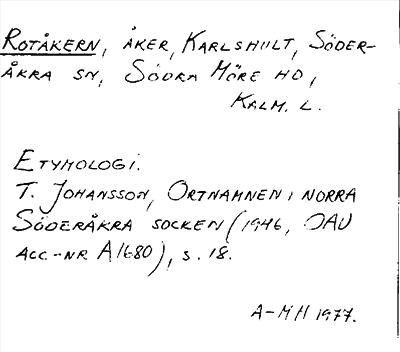 ROTÅKERN, ÅKER, KARLSHULT, SÖDER-
ÅKRA SN, SÖDRA MÖRE HD,
KALM. L.
ETYMOLOGI.
T. JOHANSSON, ORTNAMNEN I NORRA
SÖDERÅKRA SOCKEN (1946, OAU
ACC.-NR A1680), S. 18.
A-MH 1977.